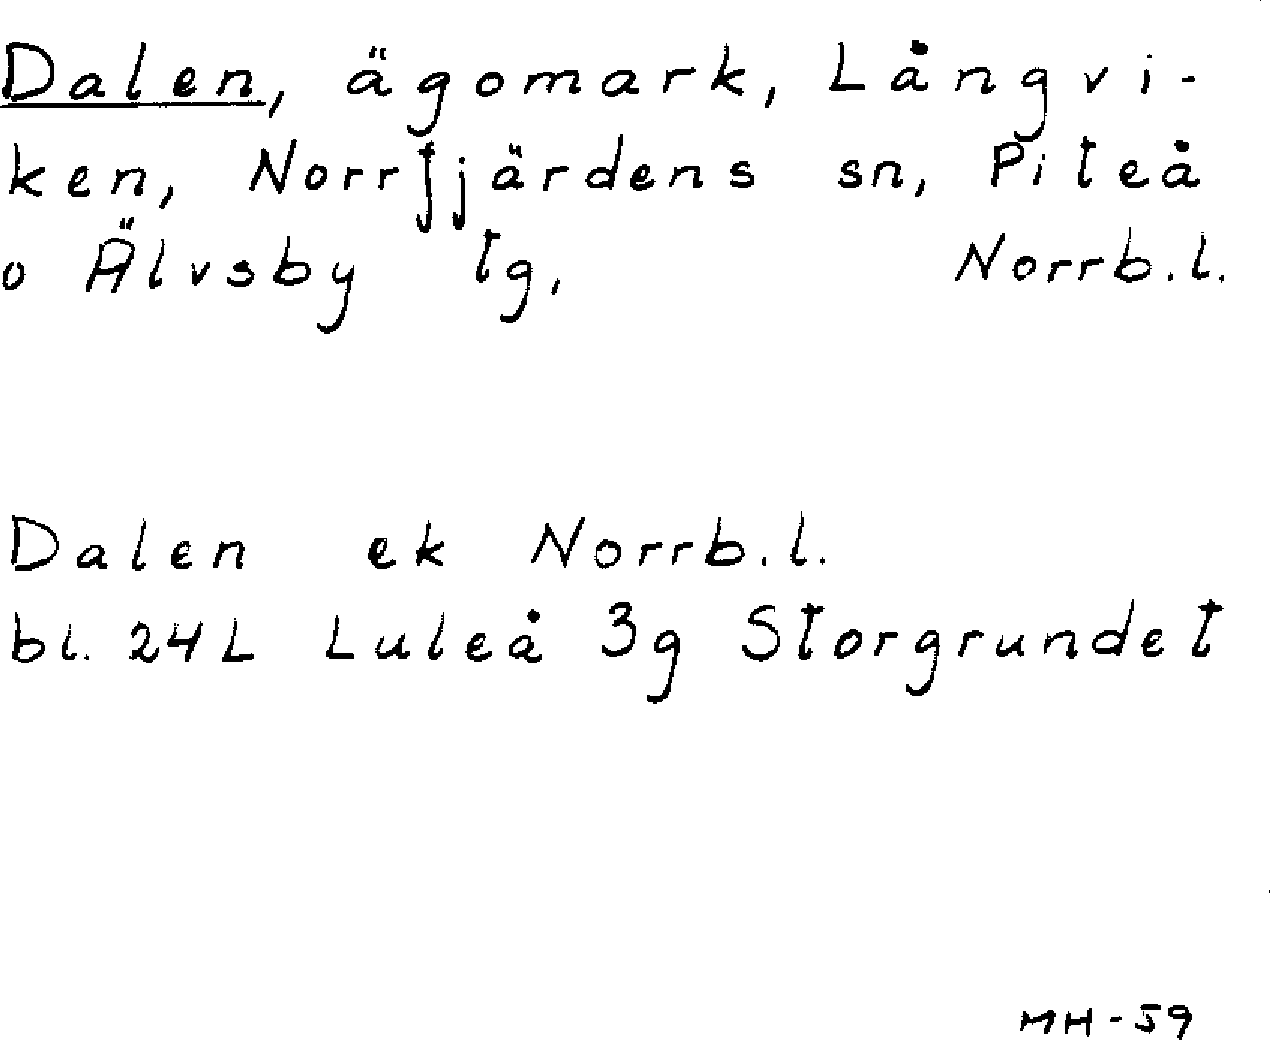 Dalen, ägomark, Långvi-
ken, Norrfjärdens sn, Piteå
o Älvsby tg, Norrb.l.
Dalen ek Norrb.l.
bl. 24L Luleå 3g Storgrundet
MH-59